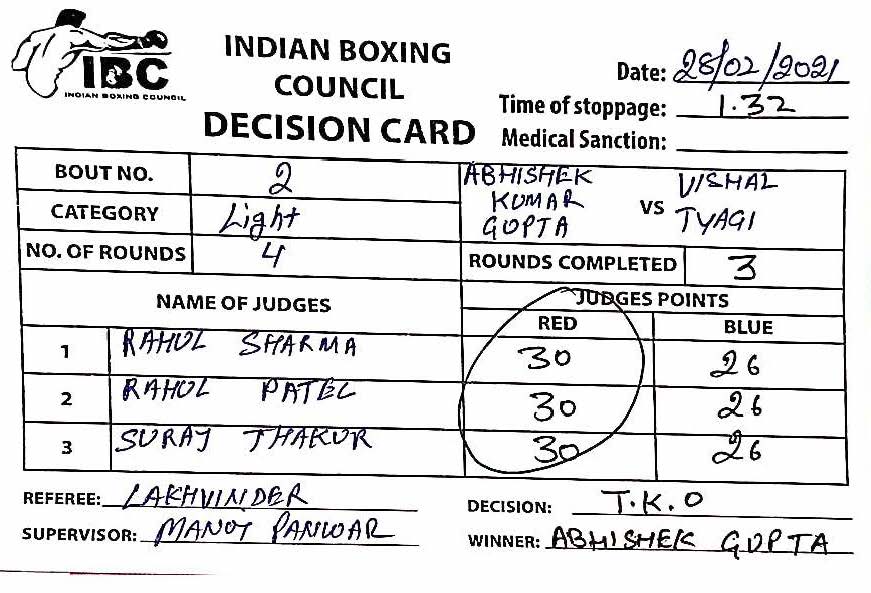 IBC
INDIAN BOXING COUNCIL
INDIAN BOXING
COUNCIL
DECISION CARD
Date: 28/02/2021
Time of stoppage: 1.32
Medical Sanction:
BOUT NO. 2
CATEGORY Light
NO. OF ROUNDS 4
ABHISHEK
KUMAR
GUPTA
VS
VISHAL
TYAGI
ROUNDS COMPLETED 3
NAME OF JUDGES
JUDGES POINTS
RED BLUE
1 RAHUL SHARMA 30 26
2 RAHUL PATEL 30 26
3 SURAJ THAKUR 30 26
REFEREE: LAKHVINDER
SUPERVISOR: MANOJ PANWAR
DECISION: T.K.O
WINNER: ABHISHEK GUPTA